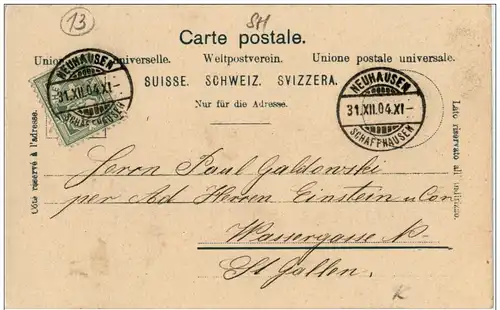 13
SH
Carte postale.
Union postale universelle. Weltpostverein. Unione postale universale.
SUISSE. SCHWEIZ. SVIZZERA.
Nur für die Adresse.
NEUHAUSEN
31.XII.04.XI-
SCHAFFHAUSEN
NEUHAUSEN
31.XII.04.XI-
SCHAFFHAUSEN
Côté réservé à l'adresse.
Lato riservato all'indirizzo.
Herrn Paul Galdowski
per Ad Herren Einstein u Co
Wassergasse
St Gallen.
K